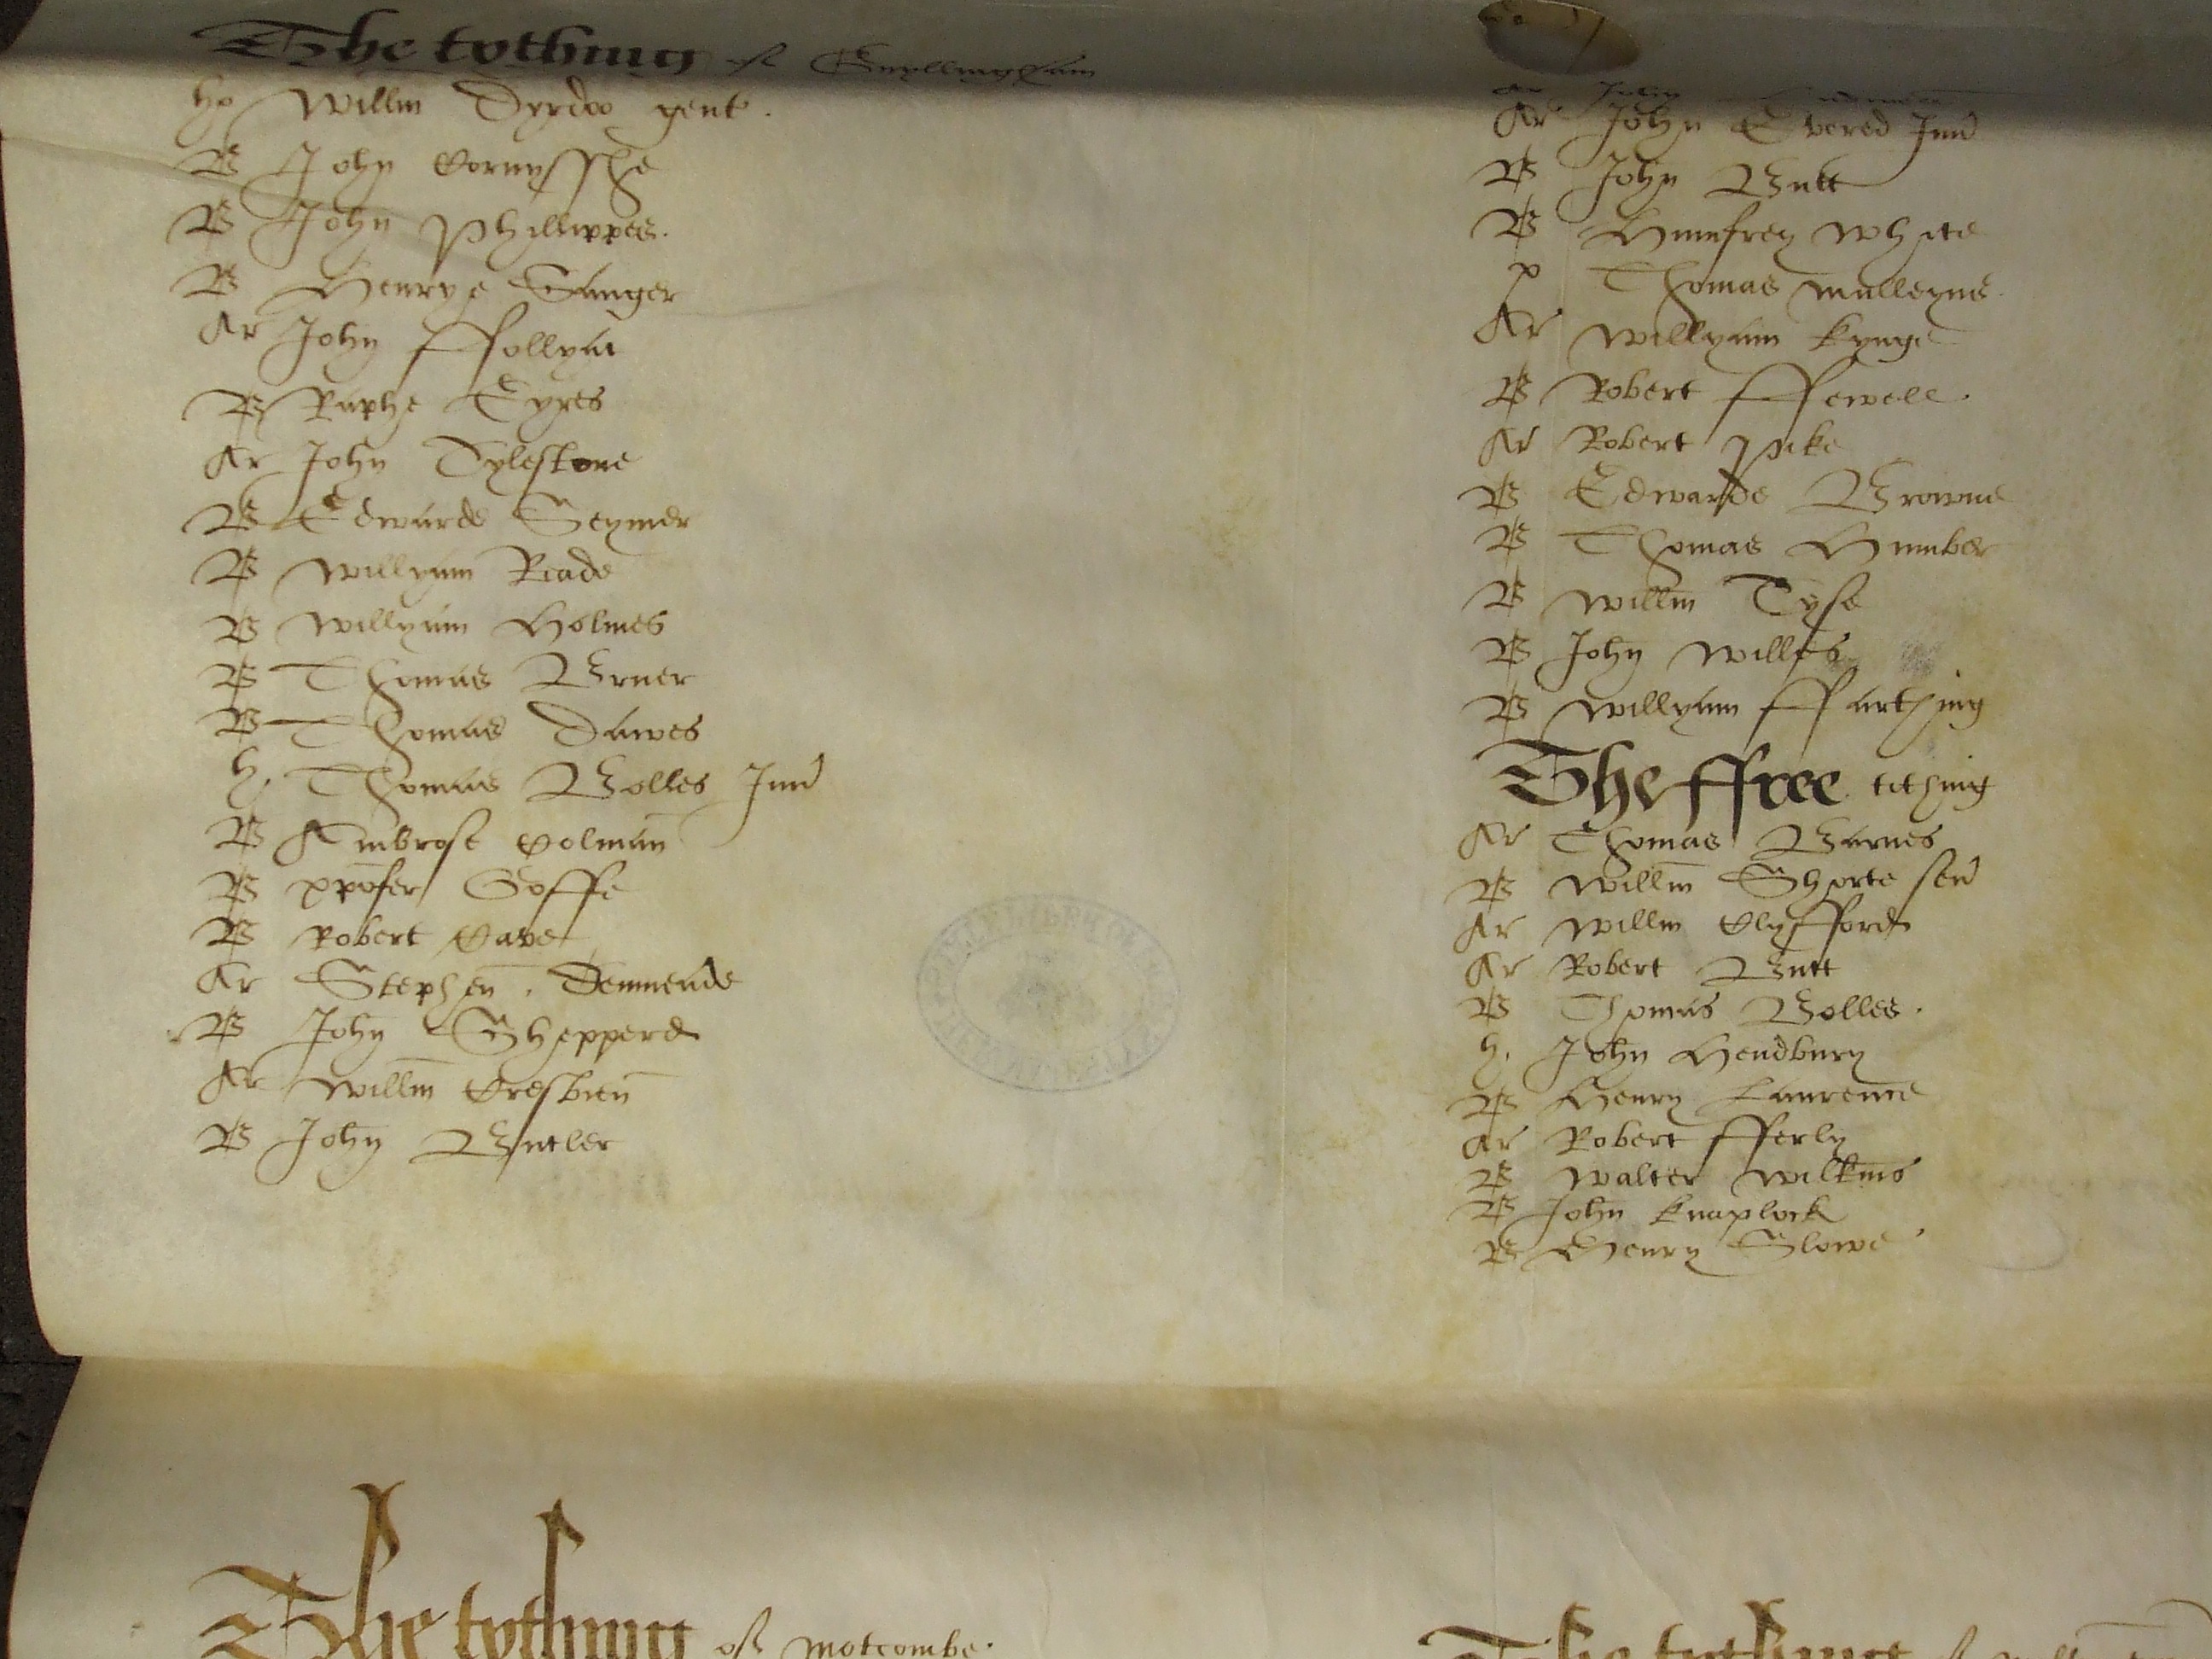 The tythinge of Gyllingham
hp Willm Dyrdoo gent.
B John Cornysshe
B John Phillippes.
B Henrye Sanger
Ar John ffollyat
B Raphe Eyres
Ar John Dylestone
B Edwarde Seymer
B Willyam Reade
B Willyam Holmes
B Thomas Bruer
B Thomas Dawes
h. Thomas Bolles Jun
B Ambrose Colman
B xpofer Goffe
B Robert Cave
Ar Stephen Demmende
B John Shepperd
Ar Willm Cresbien
B John Butler
Ar John Evered Jun
B John Butt
B Humfrey Whyte
p Thomas Mulleyns
Ar Willyam Kynge
B Robert ffewell.
Ar Robert Pike
B Edwarde Browne
B Thomas Humber
B Willm Tyse
B John Willys
B Willyam ffarthing
The ffree tithing
Ar Thomas Barnes
B Willm Shorte sen
Ar Willm Clyfford
Ar Robert Butt
B Thomas Bolles.
h. John Hendbury
B Henry Laurence
Ar Robert fferly
B Walter Wilkins
B John Knaplock
B Henry Slowe
The tything of Motcombe.
The tything of